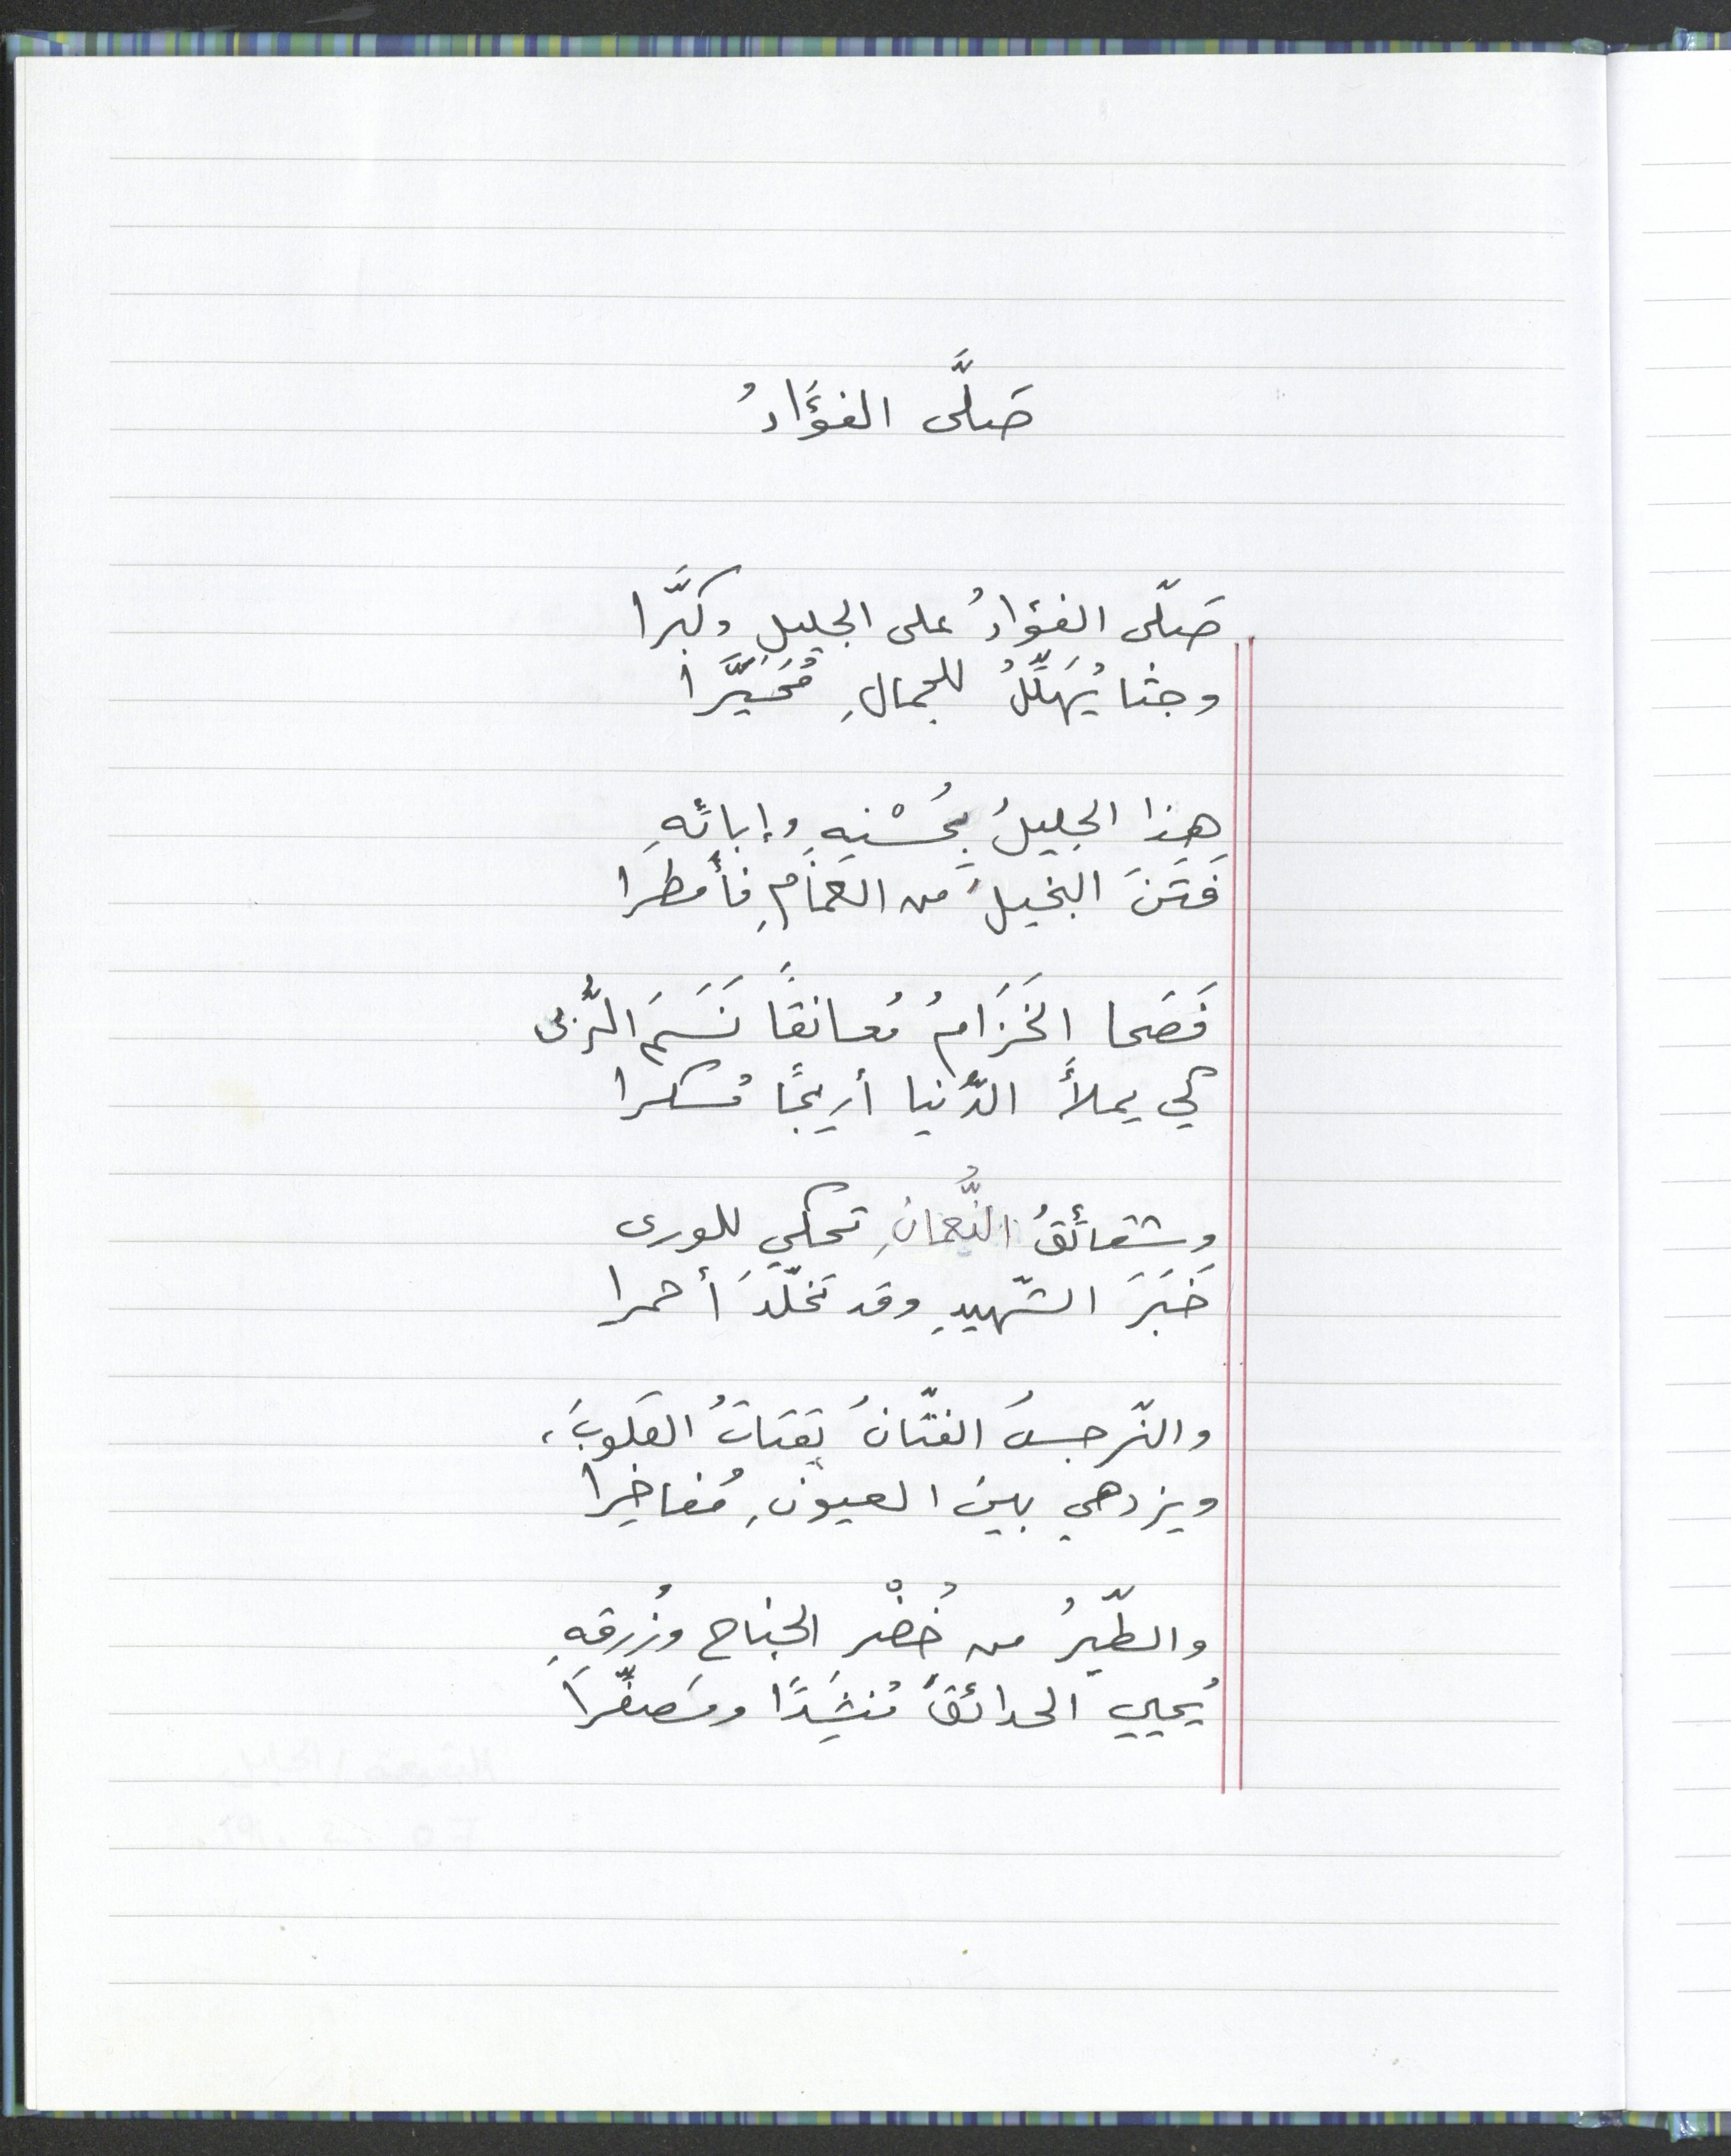 صَلَّى الفؤَادُ
صَلّى الفؤادُ على الجليلِ وكبَّرا
وجثا يُهَلِّلُ للجمالِ مُحَيَّرا
هذا الجليلُ بِحُسْنِهِ وإبائهِ
فَتَنَ البخيلَ من الغمَامِ فأمطرا
فَصَحا الخَزَامُ مُعانقًا نَسَمَ الرُّبى
كي يملأَ الدُّنيا أريجًا مُسكرا
وشقائقُ النُّعمانِ تحكي للورى
خَبَرَ الشّهيدِ وقد تَخلّدَ أحمرا
والنّرجسُ الفتّانُ يَقتاتُ القلوبَ،
ويزدهي بينَ العيونِ مُفاخِرا
والطّيرُ من خُضْر الجناح وزُرقهِ
يُحيي الحدائقَ مُنشِدًا ومُصفِّرا